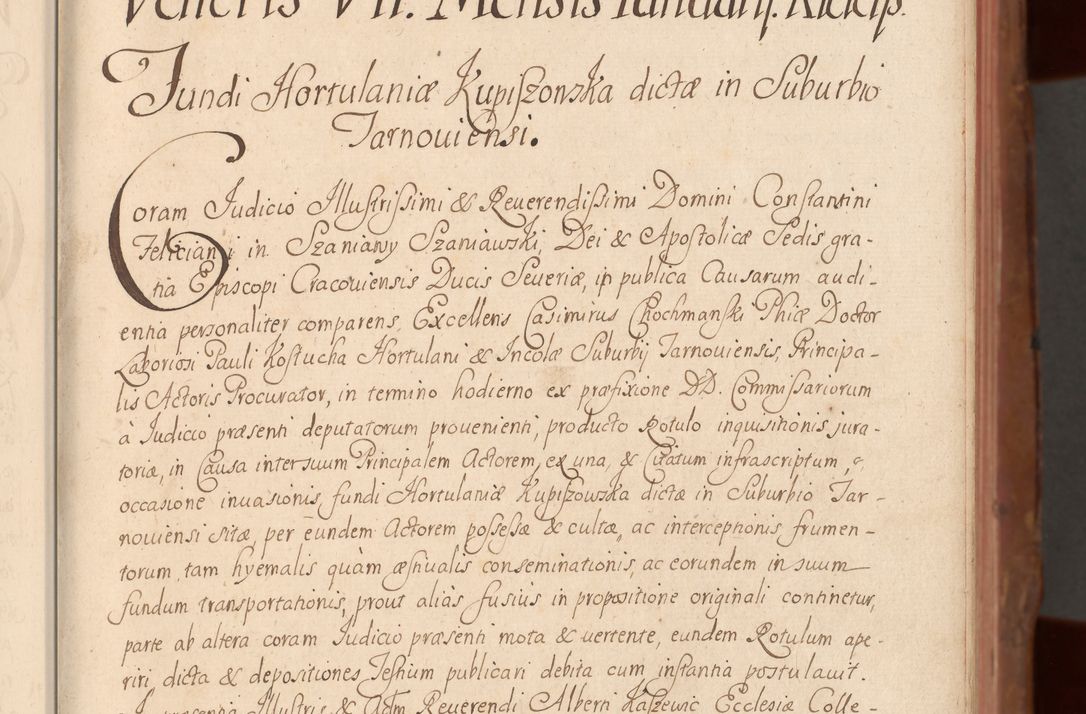 Veneris VII. Mensis Ianuarij.
Fundi Hortulaniæ Kupiszowska dictæ in Suburbio
Tarnoviensi.
Coram Judicio Illustrissimi & Reverendissimi Domini Constantini
Feliciani in Szaniawy Szaniawski, Dei & Apostolicæ Sedis gra-
tia Episcopi Cracoviensis Ducis Severiæ, in publica Causarum audi-
entia personaliter comparens, Excellens Casimirus Chochmanski Phiæ Doctor
Laboriosi Pauli Kostucha Hortulani & Incolæ Suburbij Tarnoviensis, Principa-
lis Actoris Procurator, in termino hodierno ex præfixione DD. Commissariorum
à Judicio præsenti deputatorum provenienti, producto Rotulo inquisitionis jura-
toriæ, in Causa inter suum Principalem Actorem, ex una, & Citatum infrascriptum,
occasione invasionis, fundi Hortulaniæ Kupiszowska dictæ in Suburbio Tar-
noviensi sitæ, per eundem Actorem possessæ & cultæ, ac interceptionis, frumen-
torum, tam hyemalis quàm æstivalis conseminationis, ac eorundem in suum
fundum transportationis, prout aliàs fusius in propositione originali continetur,
parte ab altera coram Judicio præsenti mota & vertente, eundem Rotulum ape-
riri, dicta & depositiones Testium publicari debita cum instantia postulavit.
In præsentia Illustris & Adm Reverendi Alberti Kaszewic Ecclesiæ Colle-